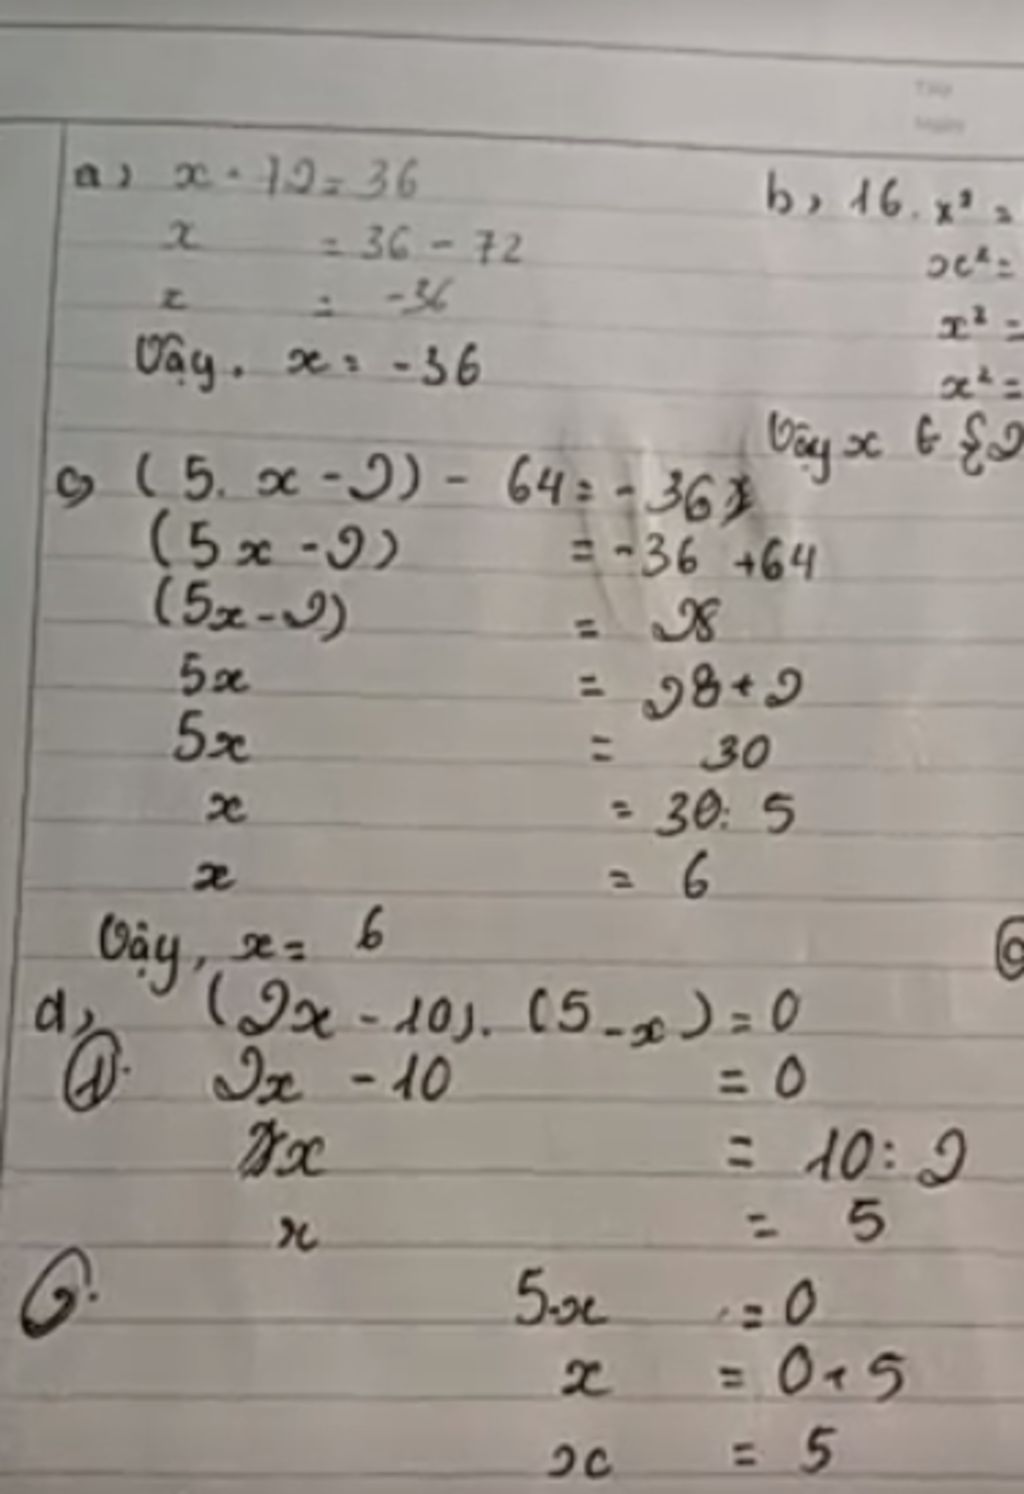 Ngày
a) x - 12 = 36
x = 36 - 72
x = -36
Vậy. x = -36
b) 16. x² =
x² =
x² =
x² =
Vậy x ∈ {2
c) (5. x - 2) - 64 = -36
(5x - 2) = -36 + 64
(5x - 2) = 28
5x = 28 + 2
5x = 30
x = 30: 5
x = 6
Vậy, x = 6
d) (2x - 10). (5 - x) = 0
①. 2x - 10 = 0
x = 10: 2
x = 5
②. 5-x = 0
x = 0 + 5
x = 5